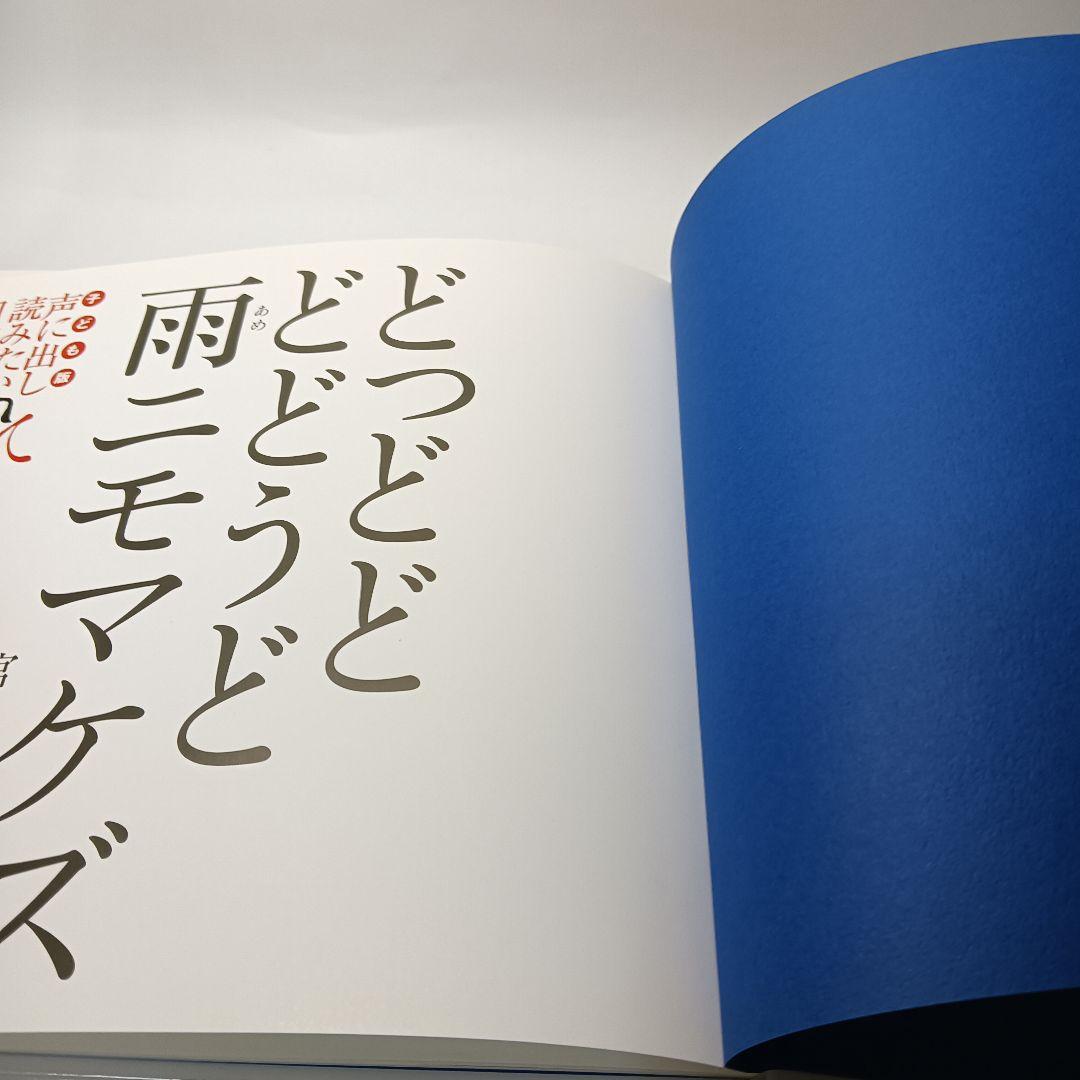 どつどど
どどうど
雨ニモマケズ
あめ
子ども版
声に出して
読みたい